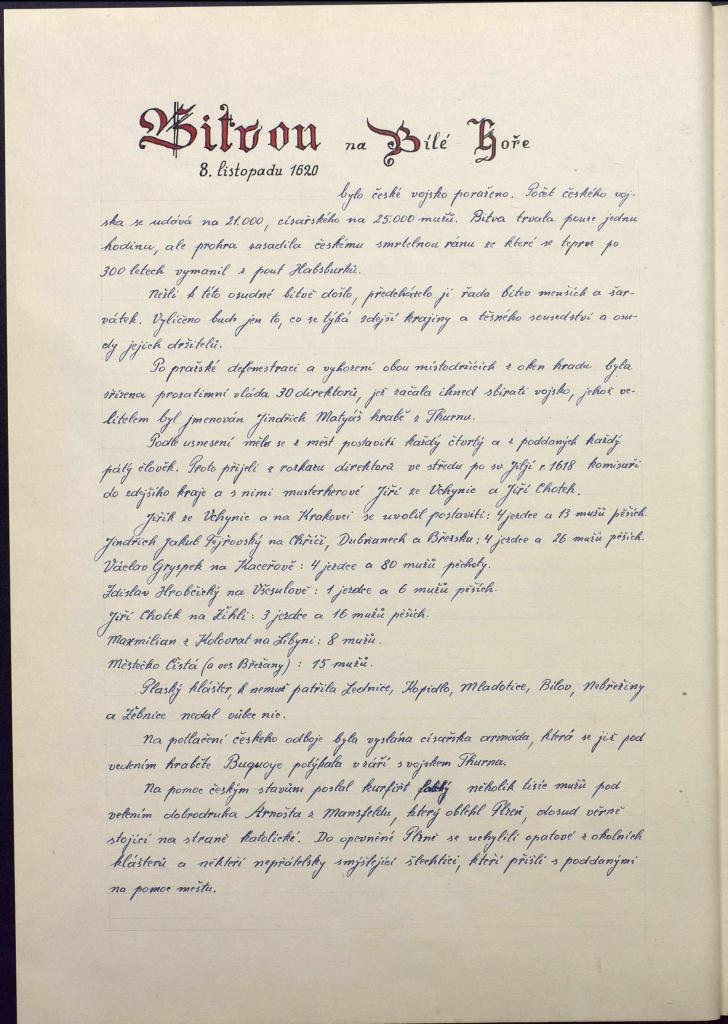 Bitvou na Bílé Hoře
8. listopadu 1620
bylo české vojsko poraženo. Počet českého voj-
ska se udává na 21.000, císařského na 25.000 mužů. Bitva trvala pouze jednu
hodinu, ale prohra zasadila českému smrtelnou ránu ze které se teprve po
300 letech vymanil z pout Habsburků.
Nežli k této osudné bitvě došlo, předcházelo jí řada bitev menších a šar-
vátek. Vylíčeno bude jen to, co se týká zdejší krajiny a těsného sousedství a osu-
dy jejich držitelů.
Po pražské defenestraci a vyhození obou místodržících z oken hradu byla
zřízena prozatimní vláda 30 direktorů, jež začala ihned sbírati vojsko, jehož ve-
litelem byl jmenován Jindřich Matyáš hrabě z Thurnu.
Podle usnesení mělo se z měst postaviti každý čtvrtý a z poddaných každý
pátý člověk. Proto přijeli z rozkazu direktorů ve středu po sv. Jiljí r. 1618 komisaři
do zdejšího kraje a s nimi musterherové Jiří ze Vchynic a Jiří Chotek.
Jiřík ze Vchynic a na Krakovci se uvolil postaviti: 4 jezdce a 13 mužů pěších.
Jindřich Jakub Fejrovský na Chříči, Dubňanech a Břežsku; 4 jezdce a 26 mužů pěších.
Václav Gryspek na Kaceřově: 4 jezdce a 80 mužů pěchoty.
Zdislav Hrobčický na Všesulově: 1 jezdce a 6 mužů pěších.
Jiří Chotek na Žihli: 3 jezdce a 16 mužů pěších.
Maxmilian z Kolovrat na Libyni: 8 mužů.
Městečko Čistá (a ves Břežany): 15 mužů.
Plaský klášter, k němuž patřila Lednice, Kopidlo, Mladotice, Bílov, Nebřeziny
a Žebnice nedal vůbec nic.
Na potlačení českého odboje byla vyslána císařská armáda, která se již pod
vedením hraběte Buquoye potýkala v září s vojskem Thurna.
Na pomoc českým stavům poslal kurfiřt několik tisíc mužů pod
velením dobrodruha Arnošta z Mansfeldu, který oblehl Plzeň, dosud věrně
stojící na straně katolické. Do opevněné Plzně se uchýlili opatové z okolních
klášterů a někteří nepřátelsky smýšlející šlechtici, kteří přišli s poddanými
na pomoc městu.